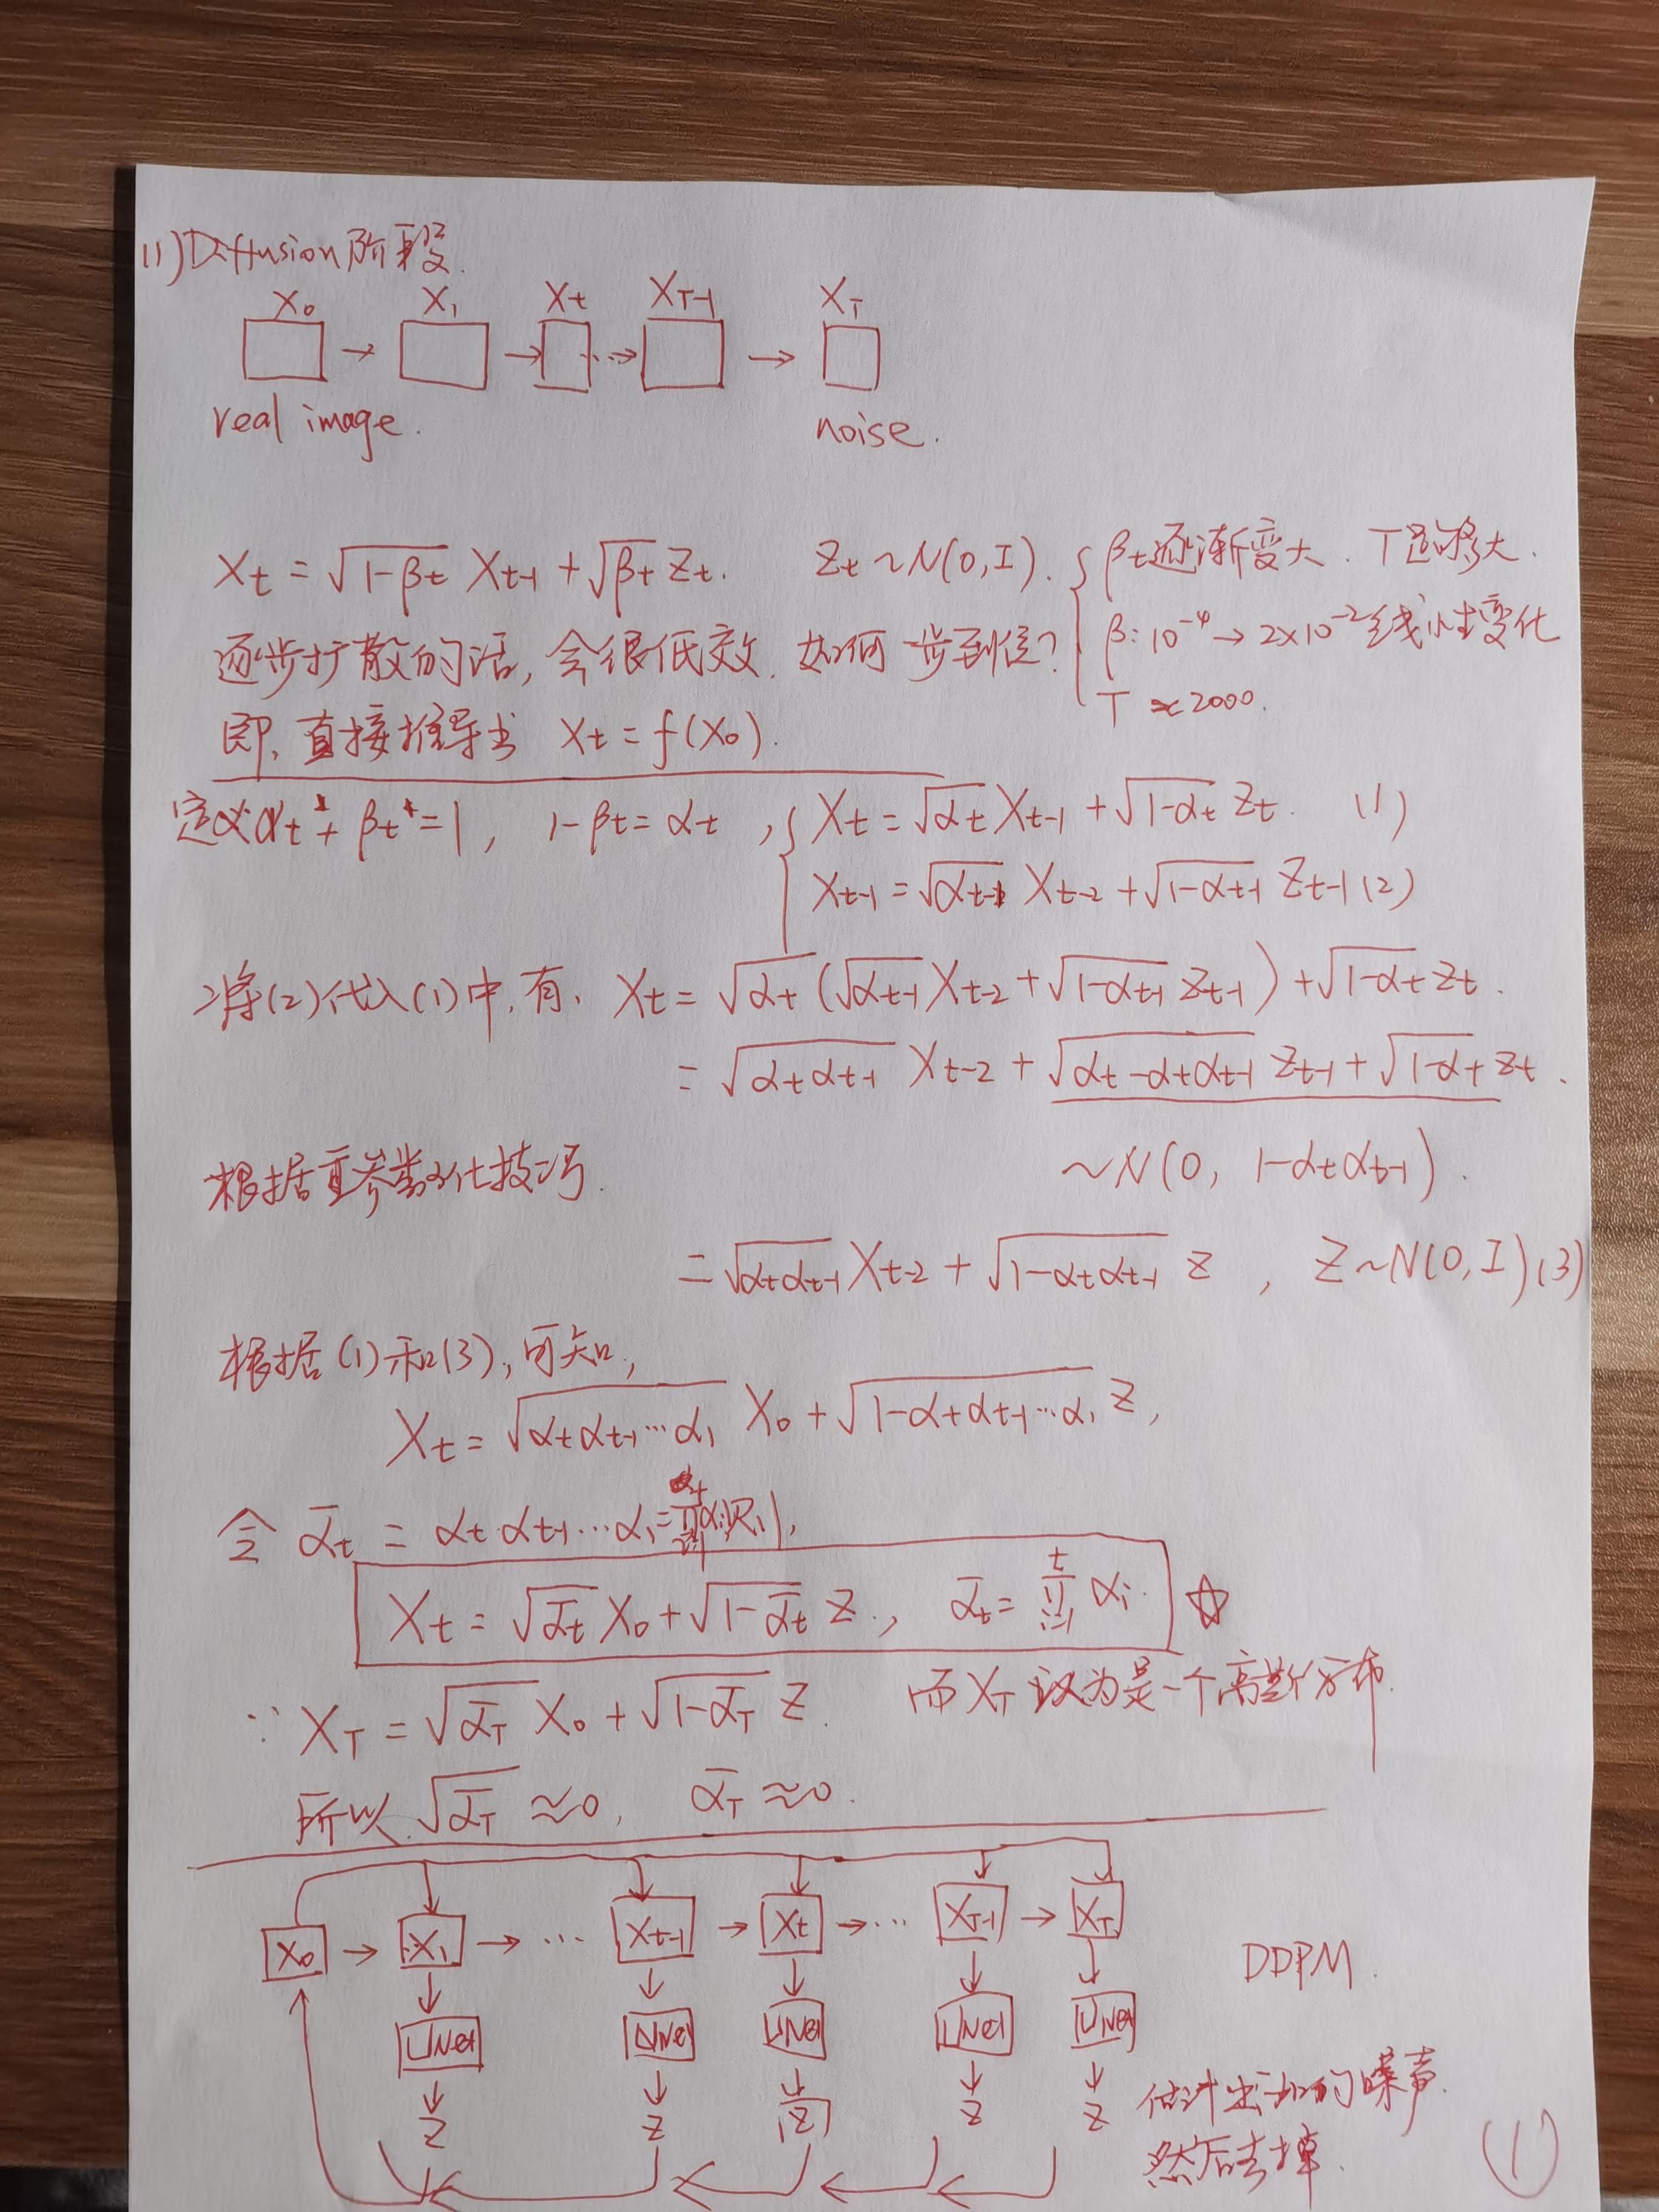 (1) Diffusion 阶段.
X₀ X₁ Xt X_{T-1} X_T
→ → ⋯→ →
real image. noise.
Xt = √(1-βt) X_{t-1} + √βt Zt. Zt ~ N(0, I). { βt逐渐变大. T足够大.
逐步扩散的话, 会很低效. 如何一步到位? β: 10⁻⁴ → 2×10⁻² 线性变化
即, 直接推导出 Xt = f(X₀). T ≈ 2000.
定义 αt + βt = 1, 1-βt = αt, { Xt = √αt X_{t-1} + √(1-αt) Zt. (1)
X_{t-1} = √α_{t-1} X_{t-2} + √(1-α_{t-1}) Z_{t-1} (2)
将(2)代入(1)中, 有, Xt = √αt (√α_{t-1} X_{t-2} + √(1-α_{t-1}) Z_{t-1}) + √(1-αt) Zt.
= √(αt α_{t-1}) X_{t-2} + √(αt - αt α_{t-1}) Z_{t-1} + √(1-αt) Zt.
~ N(0, 1-αt α_{t-1}).
根据重参数化技巧.
= √(αt α_{t-1}) X_{t-2} + √(1-αt α_{t-1}) Z, Z ~ N(0, I) (3)
根据(1)和(3), 可知,
Xt = √(αt α_{t-1} ⋯ α₁) X₀ + √(1-αt α_{t-1} ⋯ α₁) Z,
令 ᾱt = αt α_{t-1} ⋯ α₁ = ∏ αi, 则,
Xt = √ᾱt X₀ + √(1-ᾱt) Z., ᾱt = ∏_{i=1}^{t} αi. ☆
∵ X_T = √ᾱ_T X₀ + √(1-ᾱ_T) Z. 而 X_T 认为是一个高斯分布.
所以 √ᾱ_T ≈ 0, ᾱ_T ≈ 0.
X₀ → X₁ → ⋯ X_{t-1} → Xt → ⋯ X_{T-1} → X_T
DDPM.
UNet UNet UNet UNet UNet
Z Z Z Z Z
估计出加的噪声.
然后去掉.
①